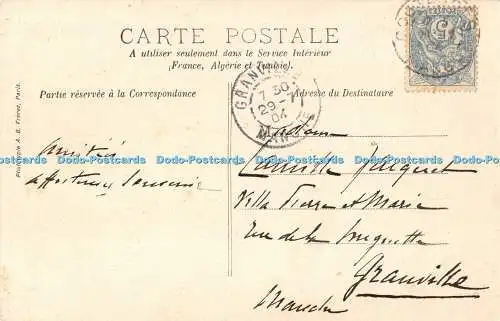 CARTE POSTALE
A utiliser seulement dans le Service Intérieur
(France, Algérie et Tunisie)
Partie réservée à la Correspondance
Adresse du Destinataire
Phototypie A. B. Frères, Paris.
5
GRANVILLE
30
29-7
04
MANCHE
Amitiés
affectueux souvenir
Madame
Camille
Villa Pierre et Marie
Rue de la Houguette
Granville
Manche
Dodo-Postcards Dodo-Postcards Dodo-Postcards